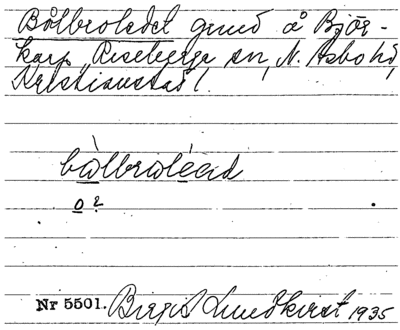 Bålbroledet grund å Björ-
karp, Riseberga sn, N. Åsbo hd,
Kristianstad l.
bòlbroléəd
o ?
Nr 5501. Birgit Lundkvist 1935